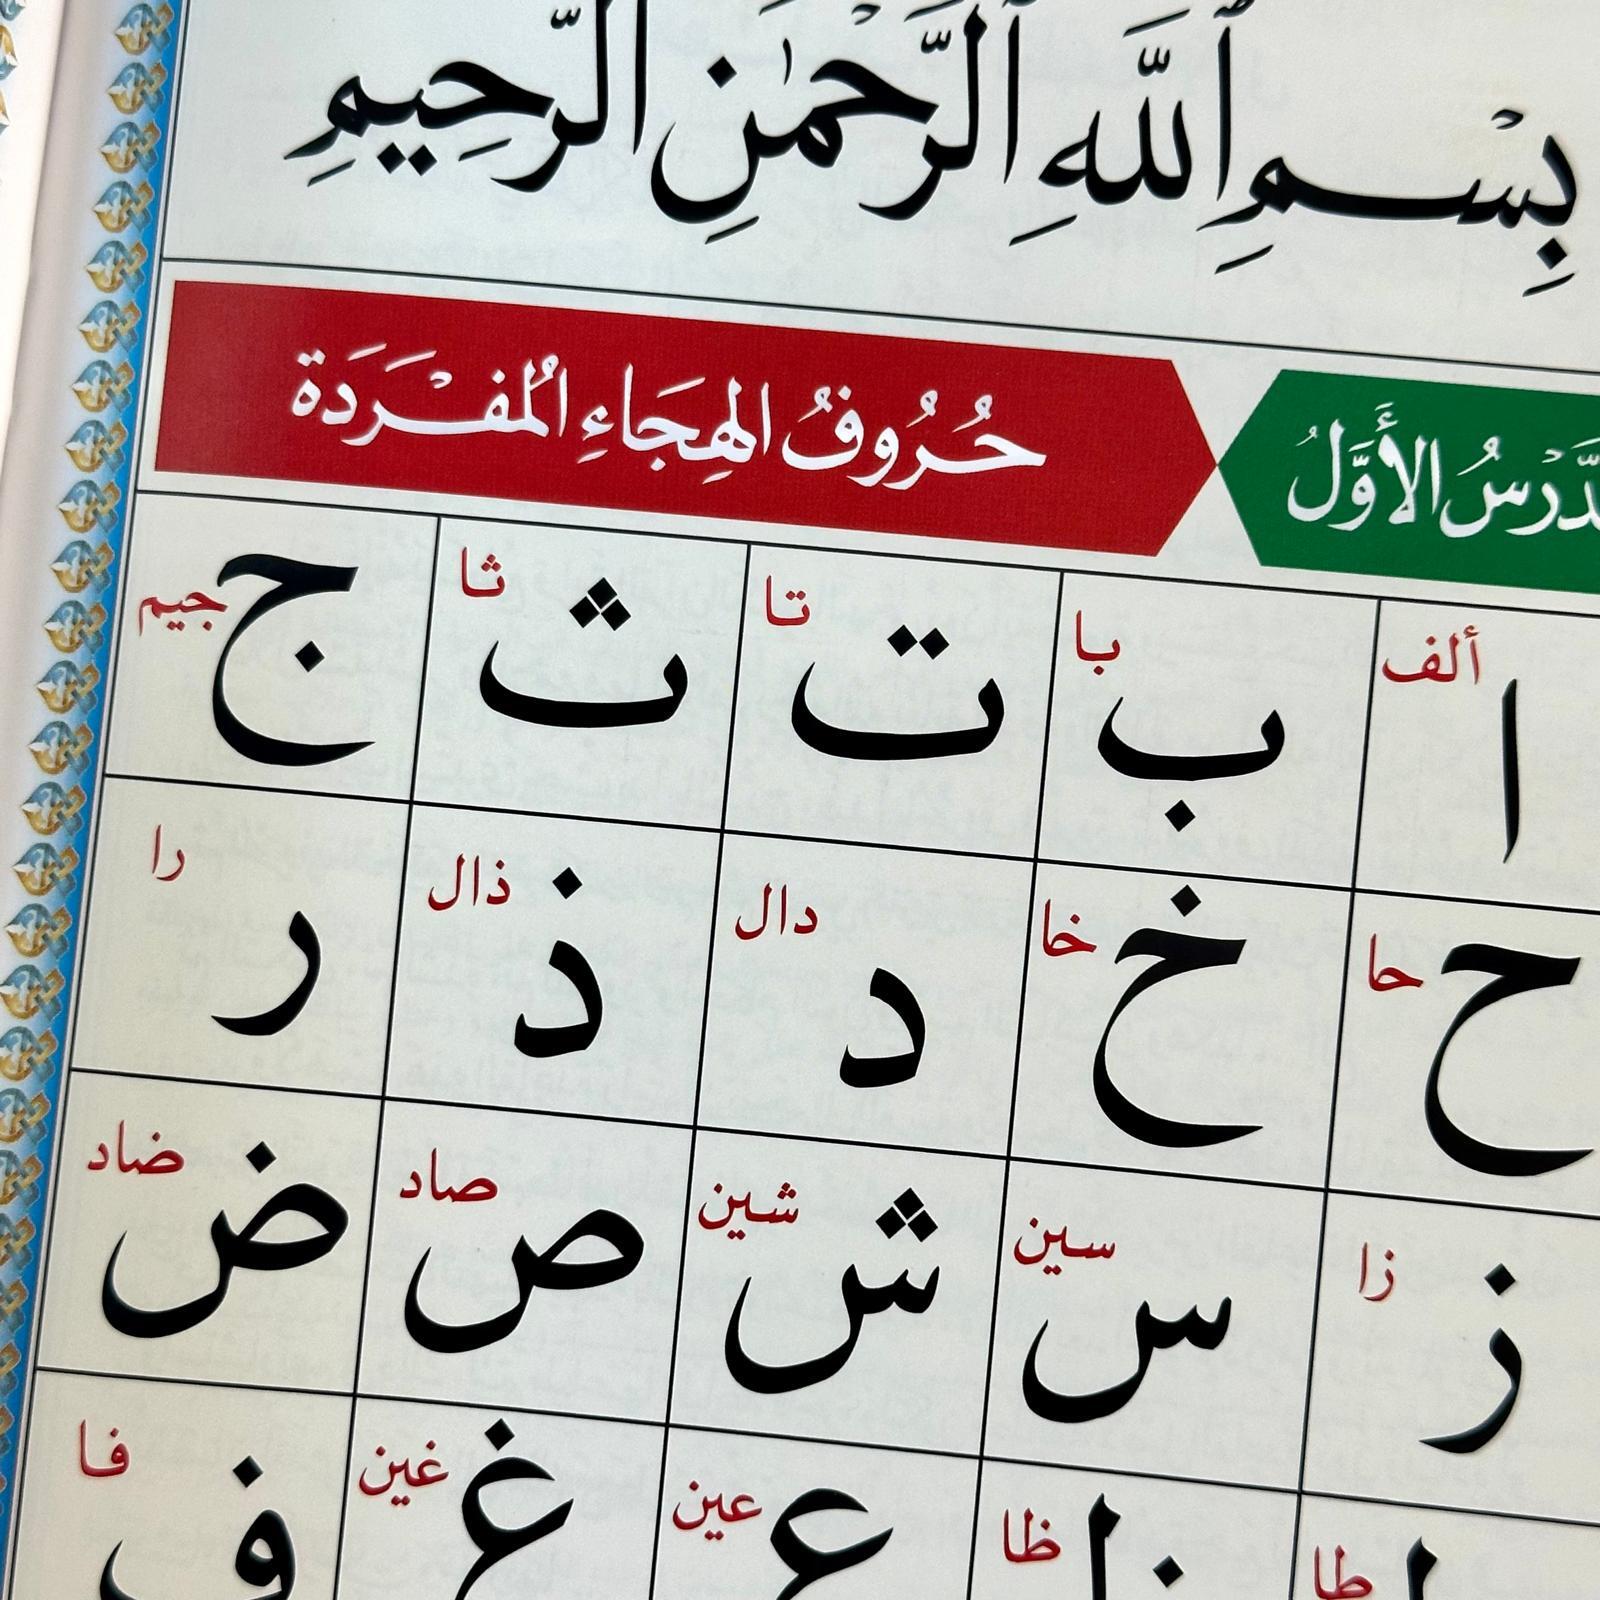 بِسْمِ ٱللَّهِ ٱلرَّحْمَٰنِ ٱلرَّحِيمِ
الدَّرْسُ الأَوَّلُ حُرُوفُ الهِجَاءِ المُفْرَدَة
ألف با تا ثا جيم
ا ب ت ث ج
حا خا دال ذال را
ح خ د ذ ر
زا سين شين صاد ضاد
ز س ش ص ض
طا ظا عين غين فا
ط ظ ع غ ف